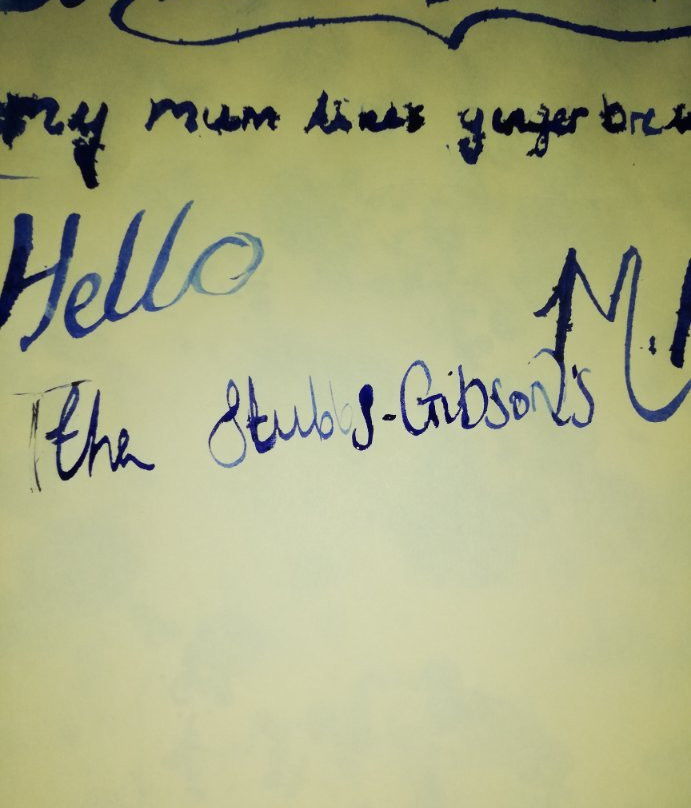 my mum likes ginger
Hello
M.
the Stubbs-Gibson's